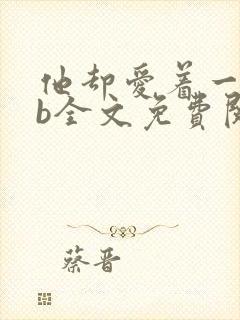 他却爱着一
b全文免费阅
蔡晋